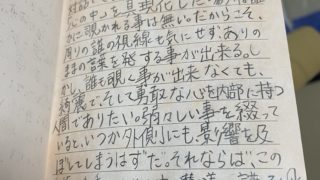 「心の中」を具現化した
かに覗かれる事は無い。だからこそ、
周りの誰の視線も気にせず、ありの
ままの言葉を発する事が出来る。し
かし、誰も覗く事が出来なくても、
綺麗で、そして勇敢な心を内部に持つ
人間でありたい。弱々しい事を綴って
いると、いつか外側にも、影響を及
ぼしてしまうはずだ。それならば、この